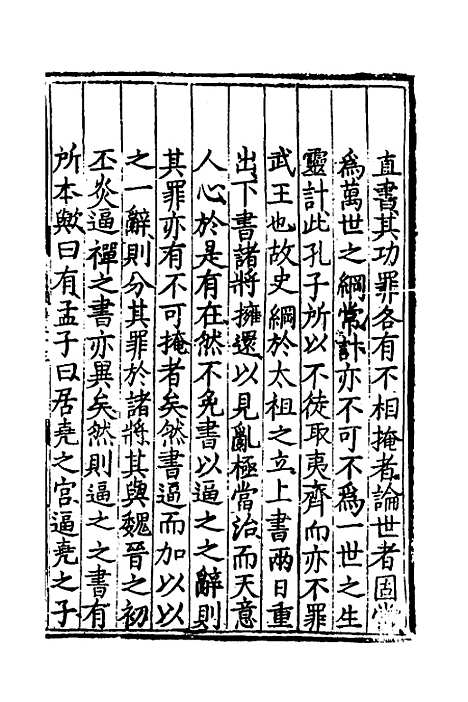 直書其功罪各有不相掩者論世者固當
為萬世之綱常計亦不可不為一世之生
靈計此孔子所以不徒取夷齊而亦不罪
武王也故史綱於太祖之立上書兩日重
出下書諸將擁還以見亂極當治而天意
人心於是有在然不免書以逼之之辭則
其罪亦有不可掩者矣然書逼而加以以
之一辭則分其罪於諸將其與魏晉之初
丕炎逼禪之書亦異矣然則逼之之書有
所本歟曰有孟子曰居堯之宫逼堯之子